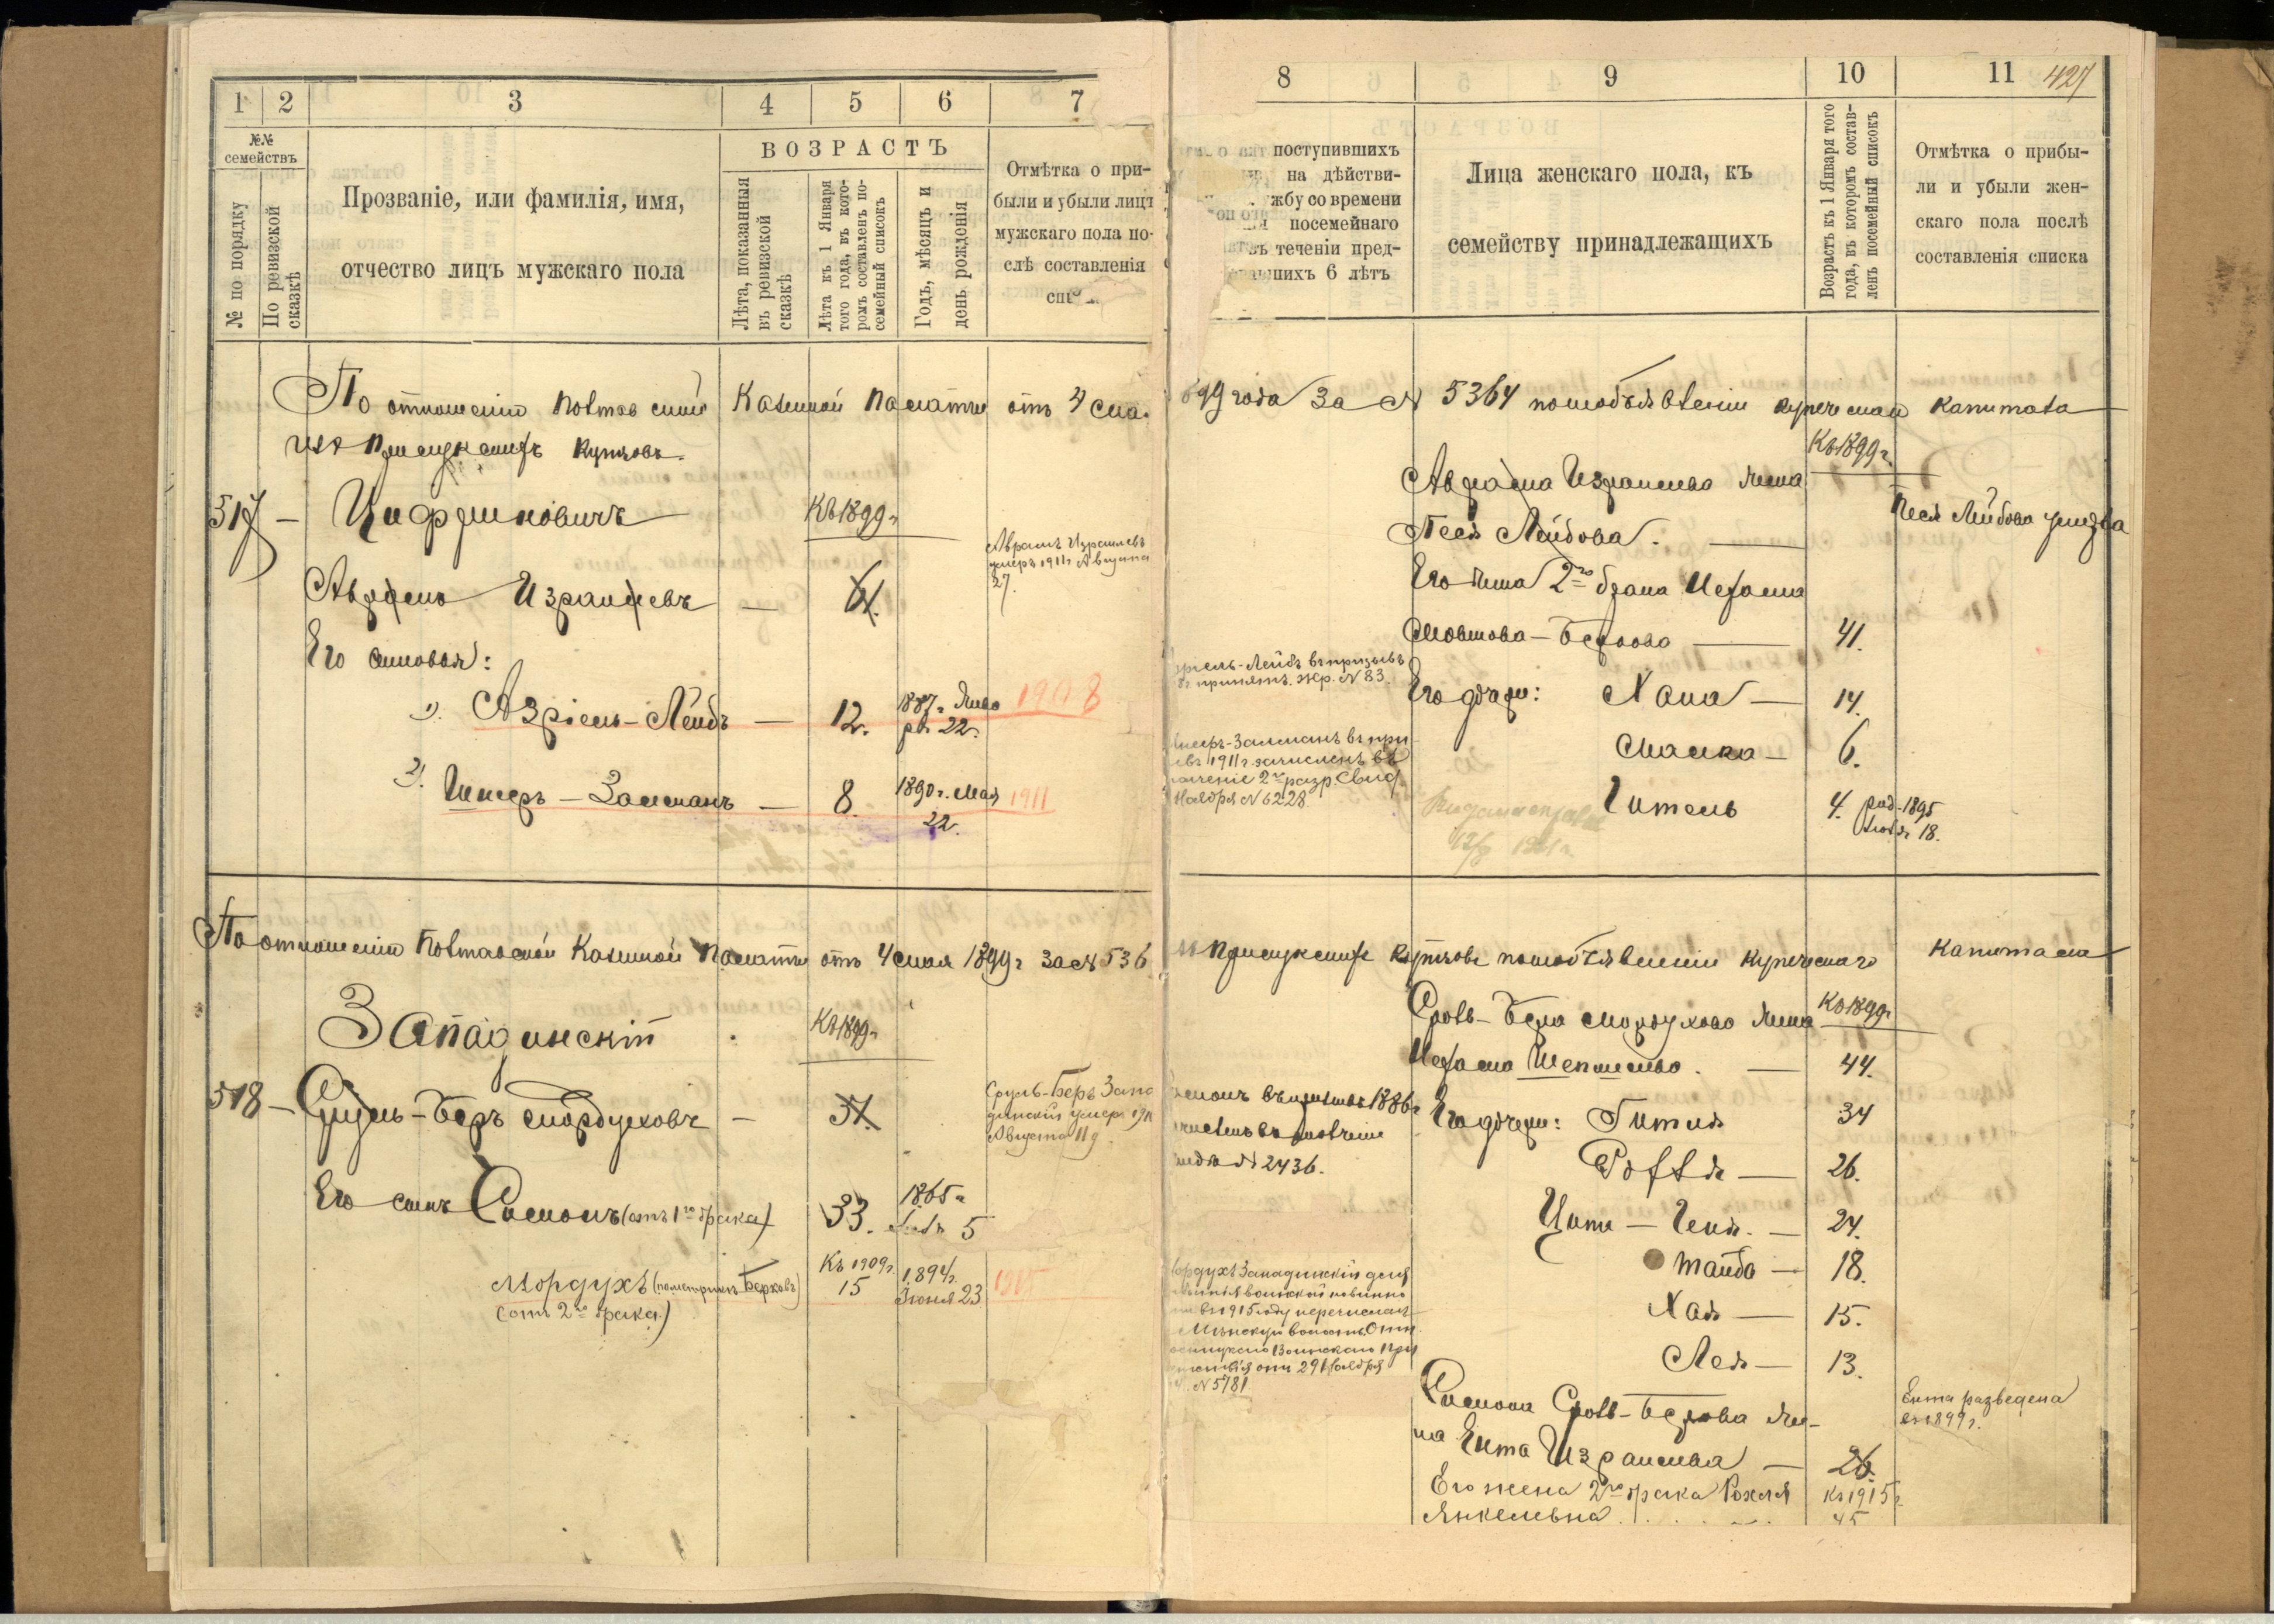 1 2 3 4 5 6 7
№№ семействъ
№ по порядку
По ревизской сказкѣ
Прозваніе, или фамилія, имя,
отчество лицъ мужскаго пола
ВОЗРАСТЪ
Лѣта, показанныя
въ ревизской
сказкѣ
Лѣта къ 1 Января
того года, въ кото-
ромъ составленъ по-
семейный списокъ
Годъ, мѣсяцъ и
день рожденія
Отмѣтка о при-
были и убыли лицъ
мужскаго пола по-
слѣ составленія
По отношенію Полтавской Казенной Палаты отъ 4 мая
Прилукскихъ купцовъ.
517 —
Къ 1899 г.
Израилевъ — 61.
Аврамъ Израилевъ
умеръ 1911 г. Августа
27.
Его сыновья:
1). Азріель-Лейбъ — 12. 1887 г. Янва 1908
ря 22.
2). — Залманъ — 8. 1890 г. Мая 1911
22.
По отношенію Полтавской Казенной Палаты отъ 4 мая 1899 г. за № 536
Западинскій
Къ 1899 г.
518 — Сруль-Беръ Мордуховъ —
Сруль-Беръ Запа
динскій умеръ
Августа 11 д.
Его сынъ Симонъ (отъ 1го брака) 33. 1865 г.
5
Мордухъ (по метрикѣ Берковъ)
(отъ 2го брака.)
Къ 1909 г.
15
1894 г.
Іюня 23
1915
8 9 10 11 427
поступившихъ
на дѣйстви-
жбу со времени
посемейнаго
въ теченіи пред-
шихъ 6 лѣтъ
Лица женскаго пола, къ
семейству принадлежащихъ
Возрастъ къ 1 Января того
года, въ которомъ состав-
ленъ посемейный списокъ
Отмѣтка о прибы-
ли и убыли жен-
скаго пола послѣ
составленія списка
899 года за № 5364 по объявленіи купеческаго капитала
Къ 1899 г.
Аврама Израилева жена
Песя Лейбова. —
Песя Лейбова умерла
Его жена 2го брака
Мовшова-Беркова — 41.
-Лейбъ въ призывъ
принятъ. жер. № 83.
Его дочери: Хана — 14.
Малка — 6.
Залманъ въ при
1911 г. зачисленъ въ
2го разр. Свид.
Ноября № 6228.
Гитель 4. род. 1895
18.
Прилукскихъ купцовъ по объявленіи купеческаго капитала
Сроль-Бера Мордухова жена Къ 1899 г.
— 44.
1886 г.
№ 2436.
Его дочери: Гитля 34
26.
— 24.
Тайба — 18.
Хая — 15.
Лея — 13.
Мордухъ Западинскій для
воинской повинно
въ 1915 году перечисленъ
Воинскаго При
отъ 29 Ноября
№ 5781
Симона Сроль-Беркова же-
на Ента Израилева — 26.
Ента разведена
въ 1899 г.
Его жена 2го брака Рохля
Янкелевна
Къ 1915 г.
45